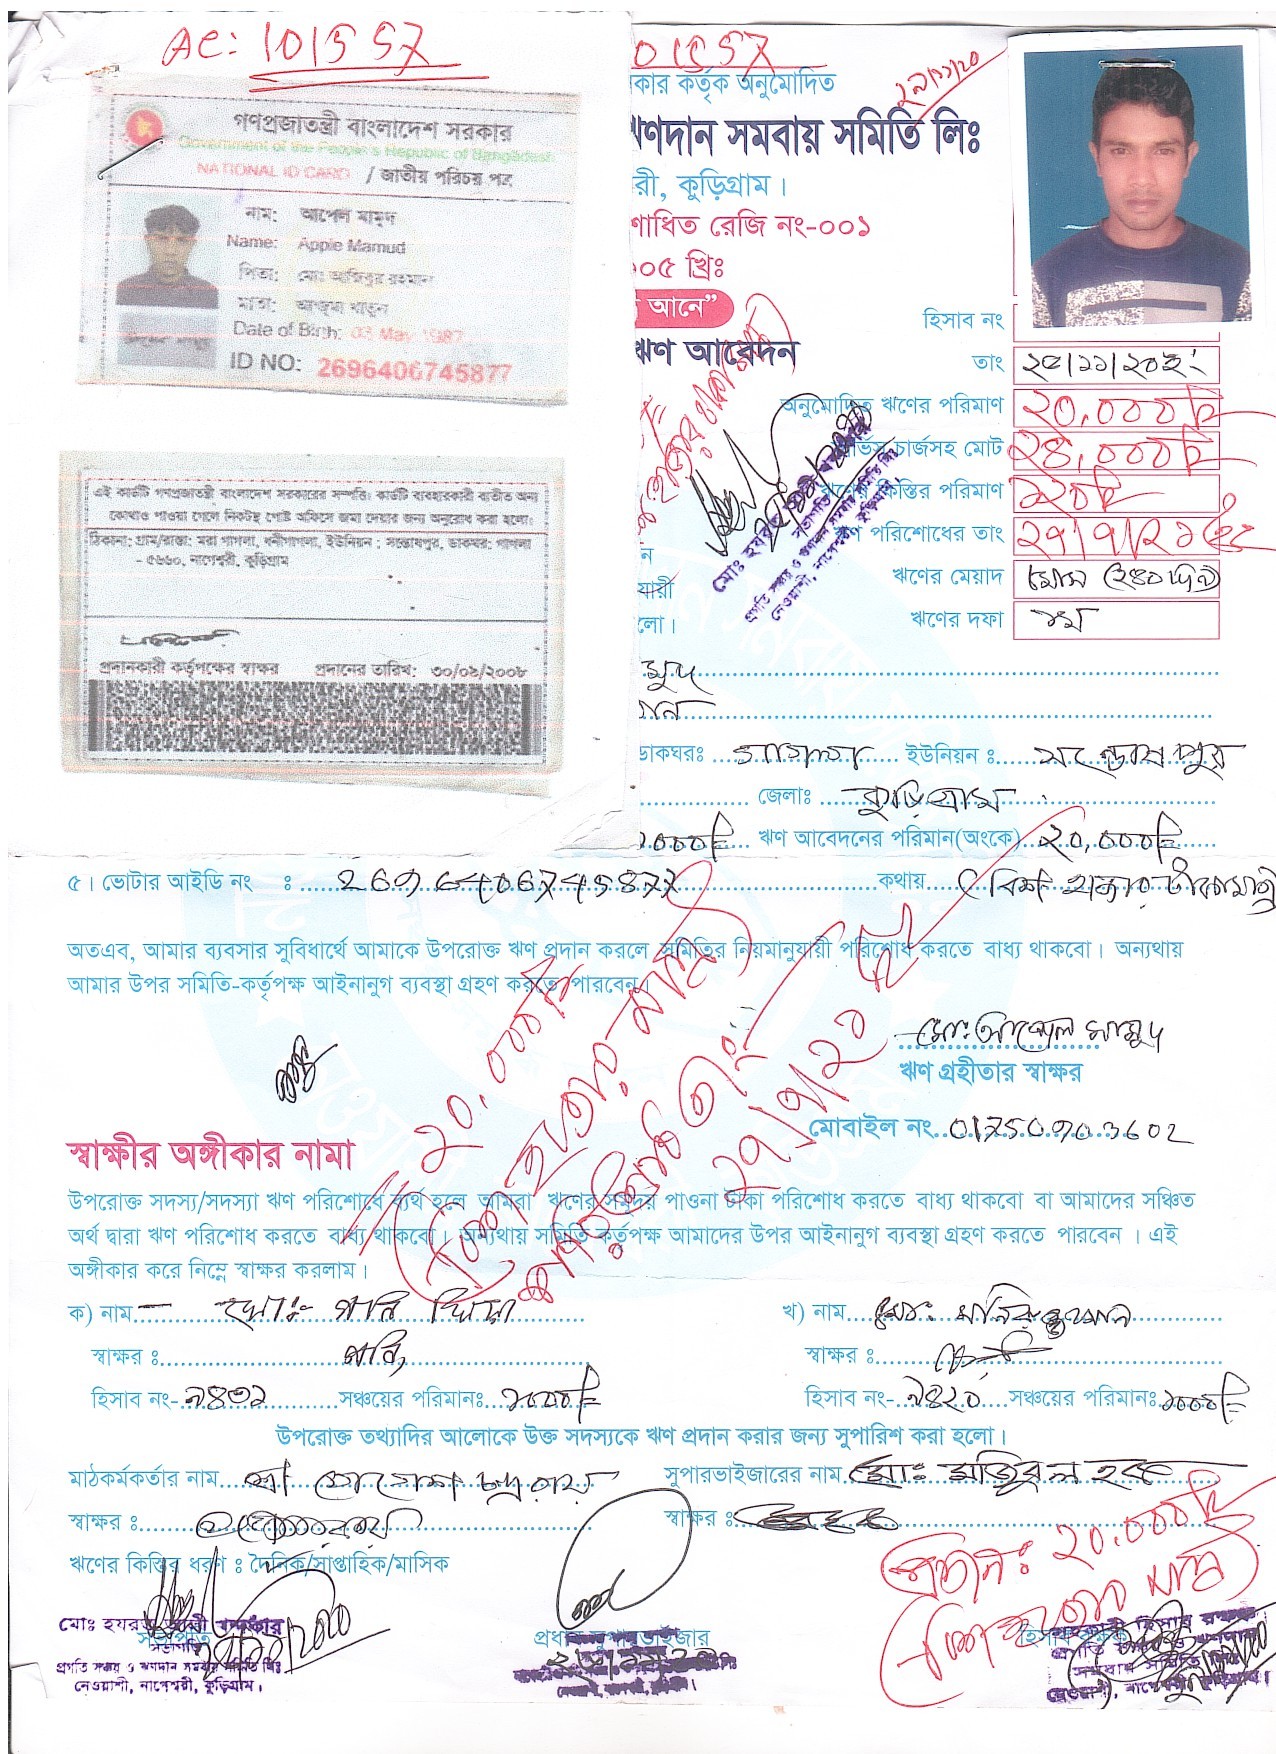 AC: 101557
গণপ্রজাতন্ত্রী বাংলাদেশ সরকার
Government of the People's Republic of Bangladesh
NATIONAL ID CARD / জাতীয় পরিচয় পত্র
নাম: আপেল মামুদ
Name: Apple Mamud
পিতা: মোঃ আজিবুর রহমান
মাতা: আঞ্জুমা খাতুন
Date of Birth: 03 May 1987
ID NO: 2696406745877
এই কার্ডটি গণপ্রজাতন্ত্রী বাংলাদেশ সরকারের সম্পত্তি। কার্ডটি ব্যবহারকারী ব্যতীত অন্য
কোথাও পাওয়া গেলে নিকটস্থ পোষ্ট অফিসে জমা দেয়ার জন্য অনুরোধ করা হলো।
ঠিকানা: গ্রাম/রাস্তা: মরা পাগলা, ধনীপাগলা, ইউনিয়ন : সন্তোষপুর, ডাকঘর: পাগলা
- ৫৬৬০, নাগেশ্বরী, কুড়িগ্রাম
প্রদানকারী কর্তৃপক্ষের স্বাক্ষর প্রদানের তারিখ: ৩০/০৯/২০০৮
01557
কার কর্তৃক অনুমোদিত
২৯/১১/২০
ঋণদান সমবায় সমিতি লিঃ
রী, কুড়িগ্রাম।
শোধিত রেজি নং-০০১
০০৫ খ্রিঃ
আনে”
ঋণ আবেদন
হিসাব নং
তাং
অনুমোদিত ঋণের পরিমাণ ২০,০০০/=
সার্ভিস চার্জসহ মোট ২৪,০০০/=
কিস্তির পরিমাণ ১২০/=
ঋণ পরিশোধের তাং ২৭/৭/২১ ইং
ঋণের মেয়াদ ৮মাস (২৪০দিন)
ঋণের দফা ১ম
মোঃ হযরত আলী খন্দকার
সভাপতি
প্রগতি সঞ্চয় ও ঋণদান সমবায় সমিতি লিঃ
নেওয়াশী, নাগেশ্বরী, কুড়িগ্রাম।
ন
যায়ী
লো।
মুদ
ডাকঘরঃ পাগলা ইউনিয়ন ঃ সন্তোষপুর
জেলাঃ কুড়িগ্রাম
০০০/= ঋণ আবেদনের পরিমান(অংকে) ২০,০০০/=
৫। ভোটার আইডি নং ঃ 2696406745877 কথায় (বিশ হাজার টাকা মাত্র)
অতএব, আমার ব্যবসার সুবিধার্থে আমাকে উপরোক্ত ঋণ প্রদান করলে সমিতির নিয়মানুযায়ী পরিশোধ করতে বাধ্য থাকবো। অন্যথায়
আমার উপর সমিতি-কর্তৃপক্ষ আইনানুগ ব্যবস্থা গ্রহণ করতে পারবেন।
মোঃ আপেল মামুদ
ঋণ গ্রহীতার স্বাক্ষর
মোবাইল নং 01750703602
২০,০০০/=
(বিশ হাজার মাত্র)
পরিশোধ তাং
২৭/৭/২১ ইং
স্বাক্ষীর অঙ্গীকার নামা
উপরোক্ত সদস্য/সদস্যা ঋণ পরিশোধে ব্যর্থ হলে আমরা ঋণের সমুদয় পাওনা টাকা পরিশোধ করতে বাধ্য থাকবো বা আমাদের সঞ্চিত
অর্থ দ্বারা ঋণ পরিশোধ করতে বাধ্য থাকবো। অন্যথায় সমিতি কর্তৃপক্ষ আমাদের উপর আইনানুগ ব্যবস্থা গ্রহণ করতে পারবেন । এই
অঙ্গীকার করে নিম্নে স্বাক্ষর করলাম।
ক) নাম মোঃ শরি মিয়া খ) নাম মোঃ মনিরুজ্জামান
স্বাক্ষর ঃ শরি স্বাক্ষর ঃ
হিসাব নং- ৯৪৩১ সঞ্চয়ের পরিমানঃ ১০০০/= হিসাব নং- ৯৪২০ সঞ্চয়ের পরিমানঃ ১০০০/=
উপরোক্ত তথ্যাদির আলোকে উক্ত সদস্যকে ঋণ প্রদান করার জন্য সুপারিশ করা হলো।
মাঠকর্মকর্তার নাম শ্রী যোগেশ চন্দ্র রায় সুপারভাইজারের নাম মোঃ মজিবুল হক
স্বাক্ষর ঃ স্বাক্ষর ঃ
ঋণের কিস্তির ধরণ ঃ দৈনিক/সাপ্তাহিক/মাসিক
প্রদান: ২০,০০০/=
(বিশ হাজার মাত্র)
সভাপতি প্রধান সুপারভাইজার হিসাব রক্ষক
মোঃ হযরত আলী খন্দকার
সভাপতি
প্রগতি সঞ্চয় ও ঋণদান সমবায় সমিতি লিঃ
নেওয়াশী, নাগেশ্বরী, কুড়িগ্রাম।
হিসাব রক্ষক
প্রগতি সঞ্চয় ও ঋণদান
সমবায় সমিতি লিঃ
নেওয়াশী, নাগেশ্বরী, কুড়িগ্রাম।